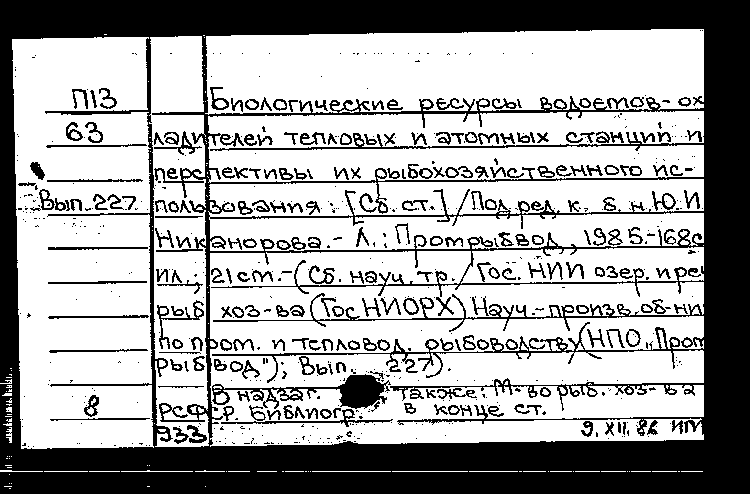 П13 Биологические ресурсы водоемов-ох
63 ладителей тепловых и атомных станций и
перспективы их рыбохозяйственного ис-
Вып. 227 пользования: [Сб. ст.] / Под ред. к. б. н. Ю. И
Никанорова. - Л.: Промрыбвод, 1985. - 168с
ил.; 21 см. - (Сб. науч. тр. / Гос. НИИ озер. и реч
рыб хоз-ва (ГосНИОРХ) Науч.-произв. об-ни
по пром. и тепловод. рыбоводству (НПО „Пром
рыбвод"); Вып. 227).
В надзаг. также: М-во рыб. хоз-ва
8 РСФСР. Библиогр. в конце ст.
933 9. XII. 86